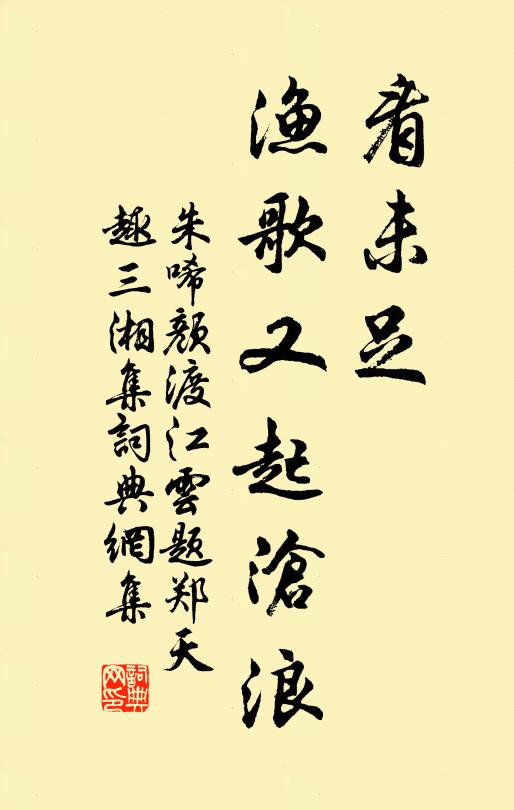 看未足
渔歌又起滄浪
朱唏颜渡江雲题郑天
趣三湘集詞典網集
詞典
网印